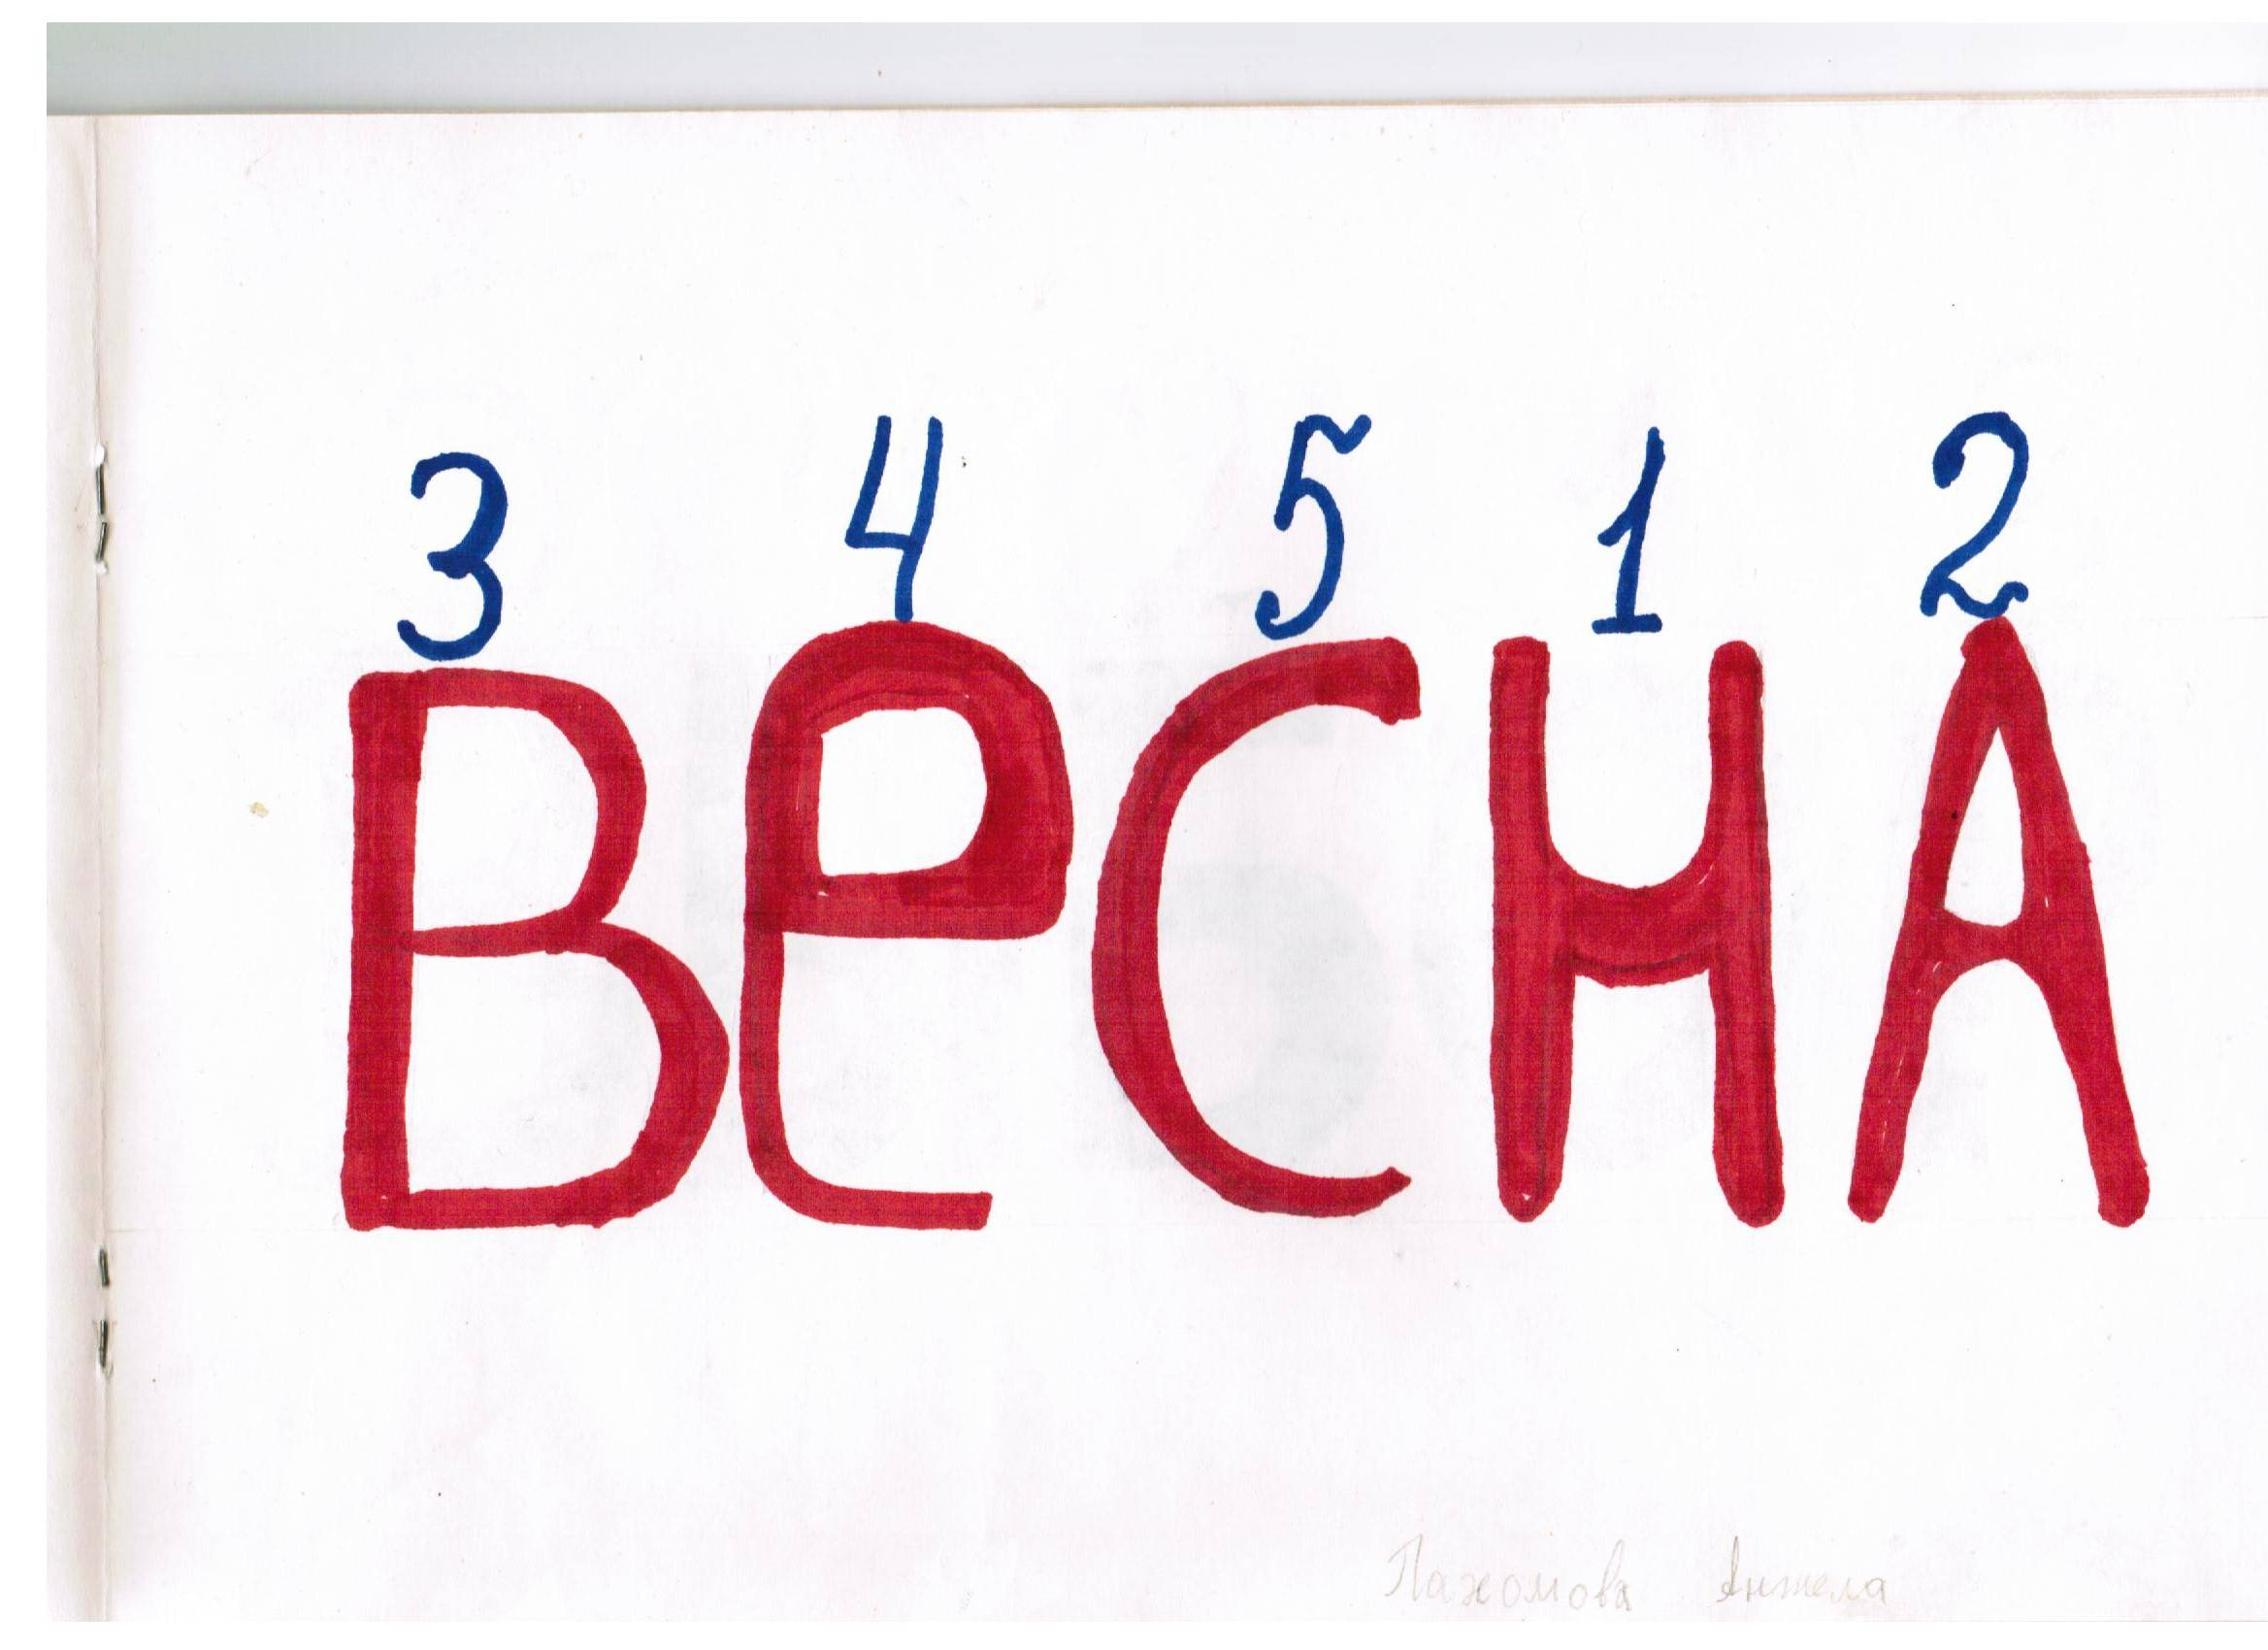 3 4 5 1 2
ВеСНА
Пахомова Анжела